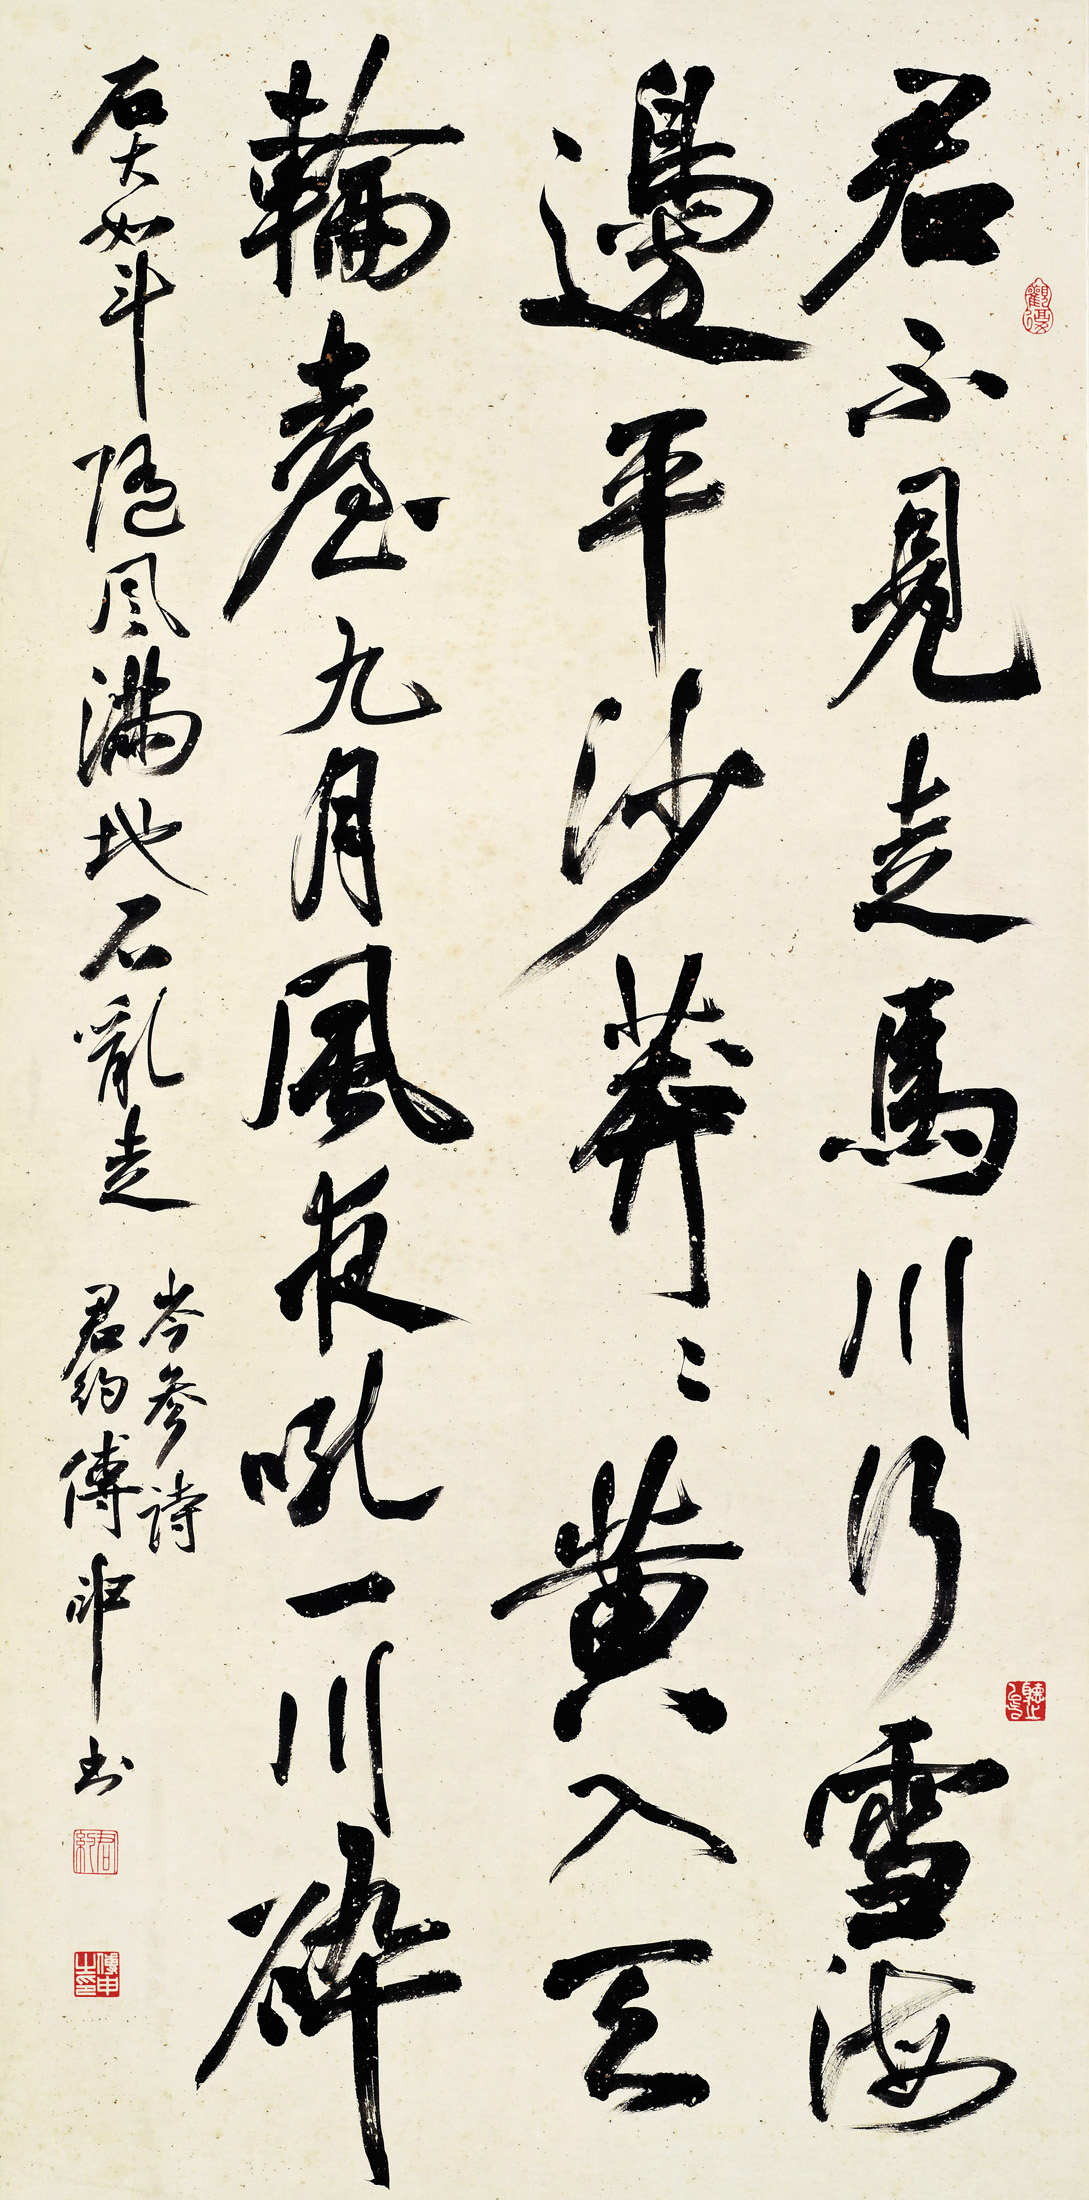 君不見走馬川行雪海
邊平沙莽〻黃入天
輪臺九月風夜吼一川碎
石大如斗隨風滿地石亂走
岑參詩
君約傅申書
君約
傅申之印